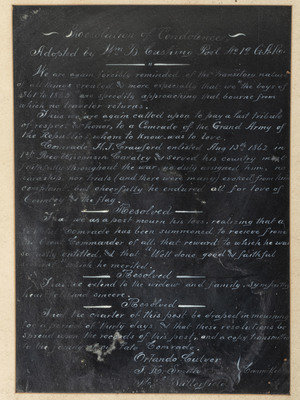 Resolution of Condolence
Adopted by Wm B. Cushing Post No 1st G.A.R.
We are again forcibly reminded of the transitory nature
of all things created & more especially that we the boys of
1861 to 1865 are speedily approaching that bourne from
which no traveler returns.
Thus we are again called upon to pay a last tribute
of respect & honor, to a Comrade of the Grand Army of
the Republic, whom to know was to love.
Comrade H. J. Crawford enlisted Aug 13th 1862 in
1st Wisconsin Cavalry & served his country
faithfully throughout the war, no duty assigned him, no
hardship nor trial (and there were many) wrested from him
complaint, but cheerfully he endured all for love of
Country & the flag.
Resolved
That we as a post mourn his loss, realizing that a
Comrade has been summoned to receive from
Great Commander of all, that reward to which he was
justly entitled, & that "Well done good & faithful
which he merited.
Resolved
That we extend to the widow and family, sympathy
and sincere.
Resolved
That the charter of this post be draped in mourning
for a period of thirty days & that these resolutions be
spread upon the records of this post, and a copy transmitted
to the family of our late Comrade.
Orlando Culver